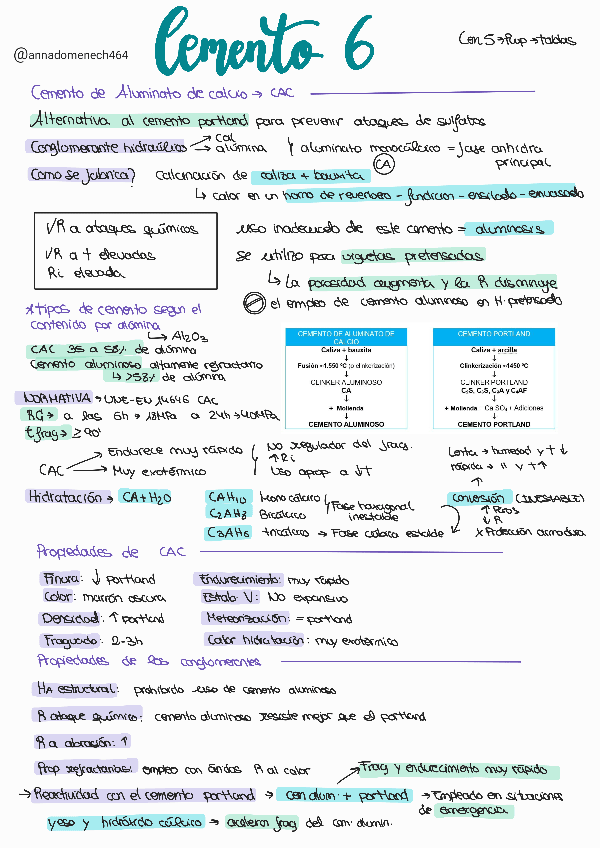 @annadomenech464
Cemento 6
Cem 5 → Rup → tablas
Cemento de Aluminato de calcio → CAC
Alternativa al cemento portland para prevenir ataques de sulfatos
Conglomerante hidráulico → cal → alúmina y aluminato monocálcico = fase anhidra principal
CA
Como se fabrica? Calcinación de caliza + bauxita
↳ calor en un horno de reverbero - fundición - ensilado - envasado
√R a ataques químicos
√R a t elevadas
Ri elevada
uso inadecuado de este cemento = aluminosis
se utilizo para viguetas pretensadas
↳ La porosidad augmenta y la R disminuye
el empleo de cemento aluminoso en H. pretensado
*tipos de cemento segun el
contenido por alúmina
↳ Al2O3
CAC 35 a 58% de alúmina
Cemento aluminoso altamente refractario
↳ >58% de alúmina
CEMENTO DE ALUMINATO DE
CALCIO
Caliza + bauxita
↓
Fusión ≈1.550 ºC (o clinkerización)
↓
CLINKER ALUMINOSO
CA
↓
+ Molienda
↓
CEMENTO ALUMINOSO
CEMENTO PORTLAND
Caliza + arcilla
↓
Clinkerización ≈1450 ºC
↓
CLINKER PORTLAND
C3S, C2S, C3A y C4AF
↓
+ Molienda Ca SO4 + Adiciones
↓
CEMENTO PORTLAND
NORMATIVA → UNE-EN 14646 CAC
RC → a las 6h → 18MPa a 24h → 40MPa
t frag → ≥90'
CAC → Endurece muy rápido
→ Muy exotérmico
No regulador del frag.
↑Ri
Uso aprop a ↓t
Lenta → humedad y t ↓
rápida → " y t↑
↑
Hidratación → CA+H2O
CAH10 Monocálcico
C2AH8 Bicálcico
Fase hexagonal
inestable
C3AH6 tricálcico → Fase cúbica estable
conversión (INEVITABLE)
↑ Poros
↓ R
x Protección armadura
Propiedades de CAC
Finura: ↓ portland
Color: marrón oscura
Densidad: ↑ portland
Fraguado: 2-3h
Endurecimiento: muy rápido
Estab V: No expansivo
Meteorización: = portland
Calor hidratación: muy exotérmico
Propiedades de los conglomerantes
HA estructural: prohibido uso de cemento aluminoso
R ataque químico: cemento aluminoso resiste mejor que el portland
R a abrasión: ↑
Prop refractarias: empleo con áridos R al calor
Frag y endurecimiento muy rápido
→ Reactividad con el cemento portland → cem alum. + portland → Empleado en situaciones
de emergencia
yeso y hidróxido cálcico → aceleran frag del cem. alumin.